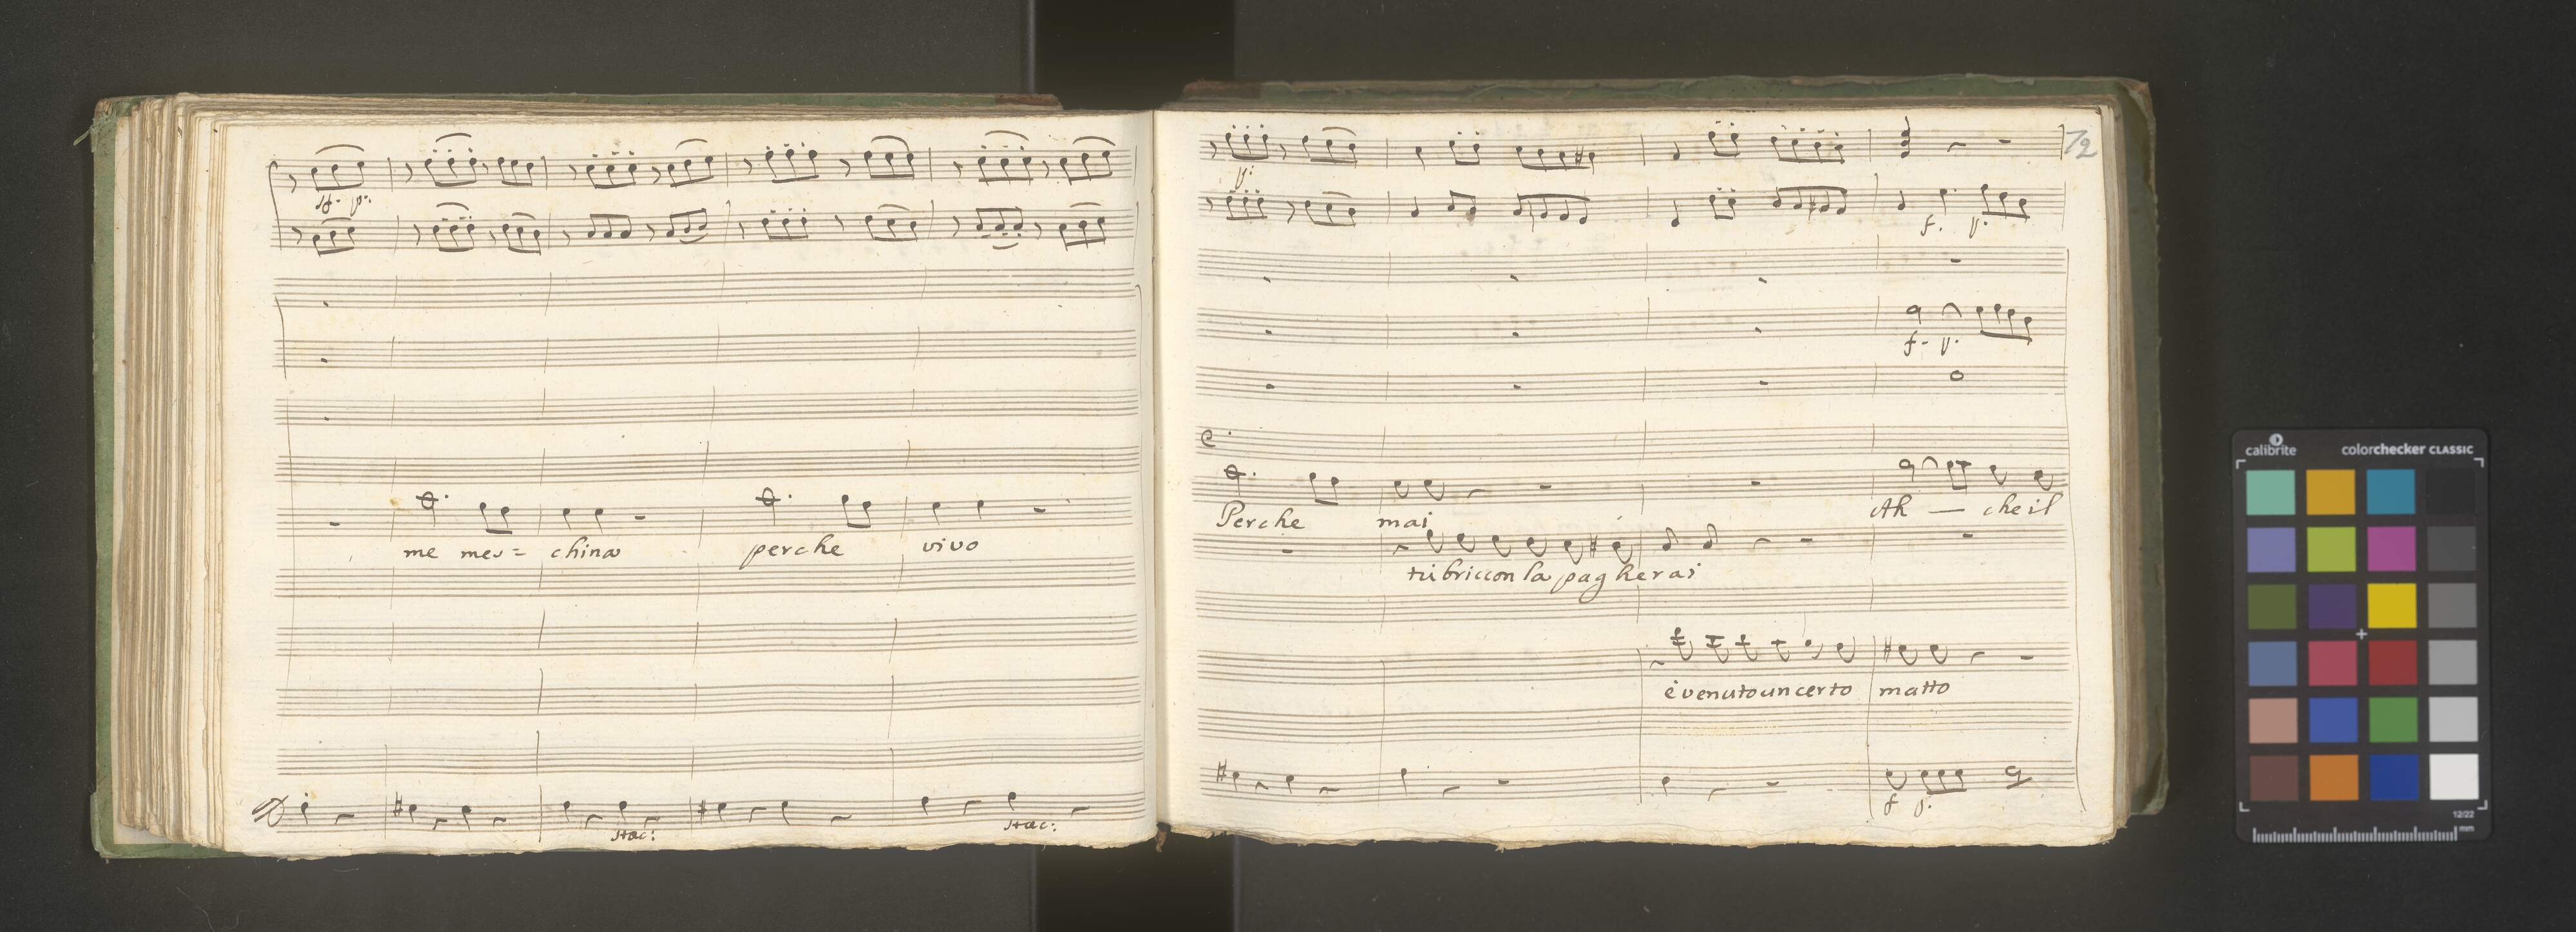 sf. p.
me mes= china perche vivo
stac: stac:
72
p.
f. p.
f. p.
Perche mai Ah — che il
tu briccon la pagherai
è venuto un certo matto
f p.
calibrite colorchecker CLASSIC
12/22
mm